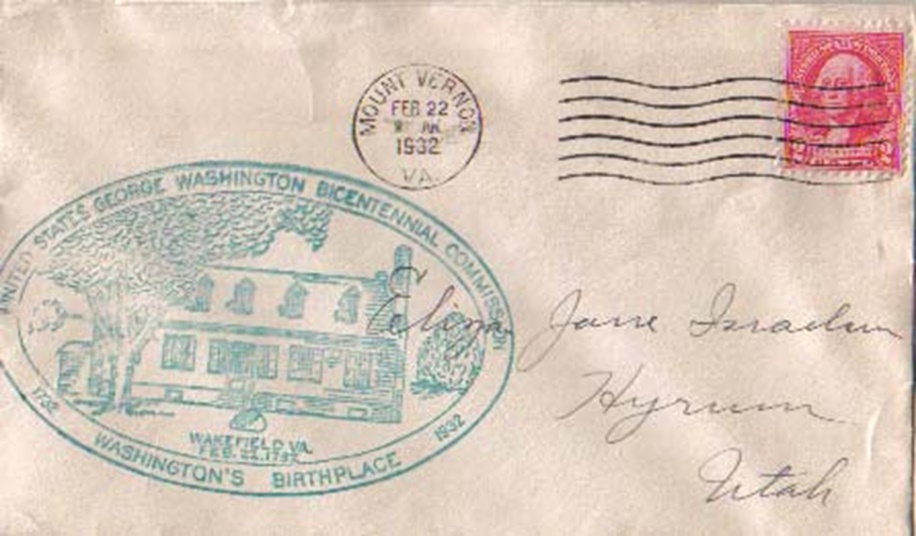 MOUNT VERNON
FEB 22
AM
1932
VA.
UNITED STATES GEORGE WASHINGTON BICENTENNIAL COMMISSION
1732
1932
WAKEFIELD VA.
FEB. 22, 1732
WASHINGTON'S BIRTHPLACE
Eliza Jane Israelsen
Hyrum
Utah